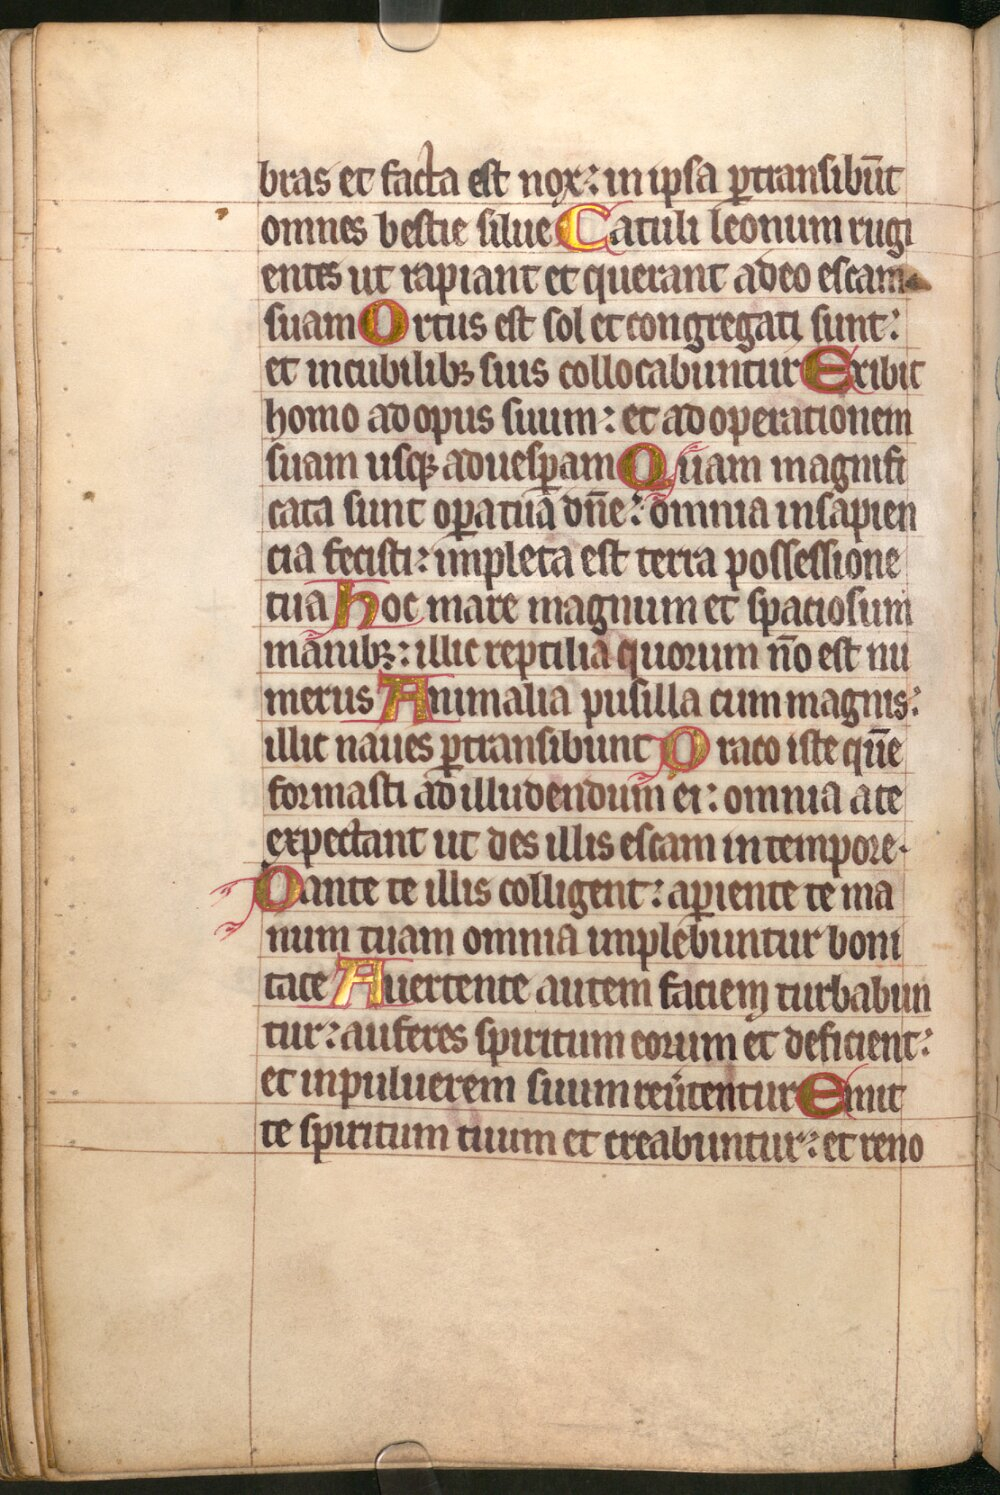 bras et facta est nox: in ipsa ꝑtransibūt
omnes bestie silue Catuli leonum rugi
entes ut rapiant et querant adeo escam
suam Ortus est sol et congregati sunt:
et in cubilibꝫ suis collocabuntur Exibit
homo ad opus suum: et ad operationem
suam usqꝫ ad uesꝑam Quam magnifi
cata sunt oꝑa tua dn̄e: omnia in sapien
cia fecisti: impleta est terra possessione
tua Hoc mare magnum et spaciosum
manibꝫ: illic reptilia quorum nō est nu
merus Animalia pusilla cum magnis:
illic naues ꝑtransibunt Draco iste quē
formasti ad illudendum ei: omnia a te
expectant ut des illis escam in tempore.
Dante te illis colligent: aꝑiente te ma
num tuam omnia implebuntur boni
tate Auertente autem faciem turbabun
tur: auferes spiritum eorum et deficient:
et in puluerem suum reūtentur Emit
te spiritum tuum et creabuntur: et reno